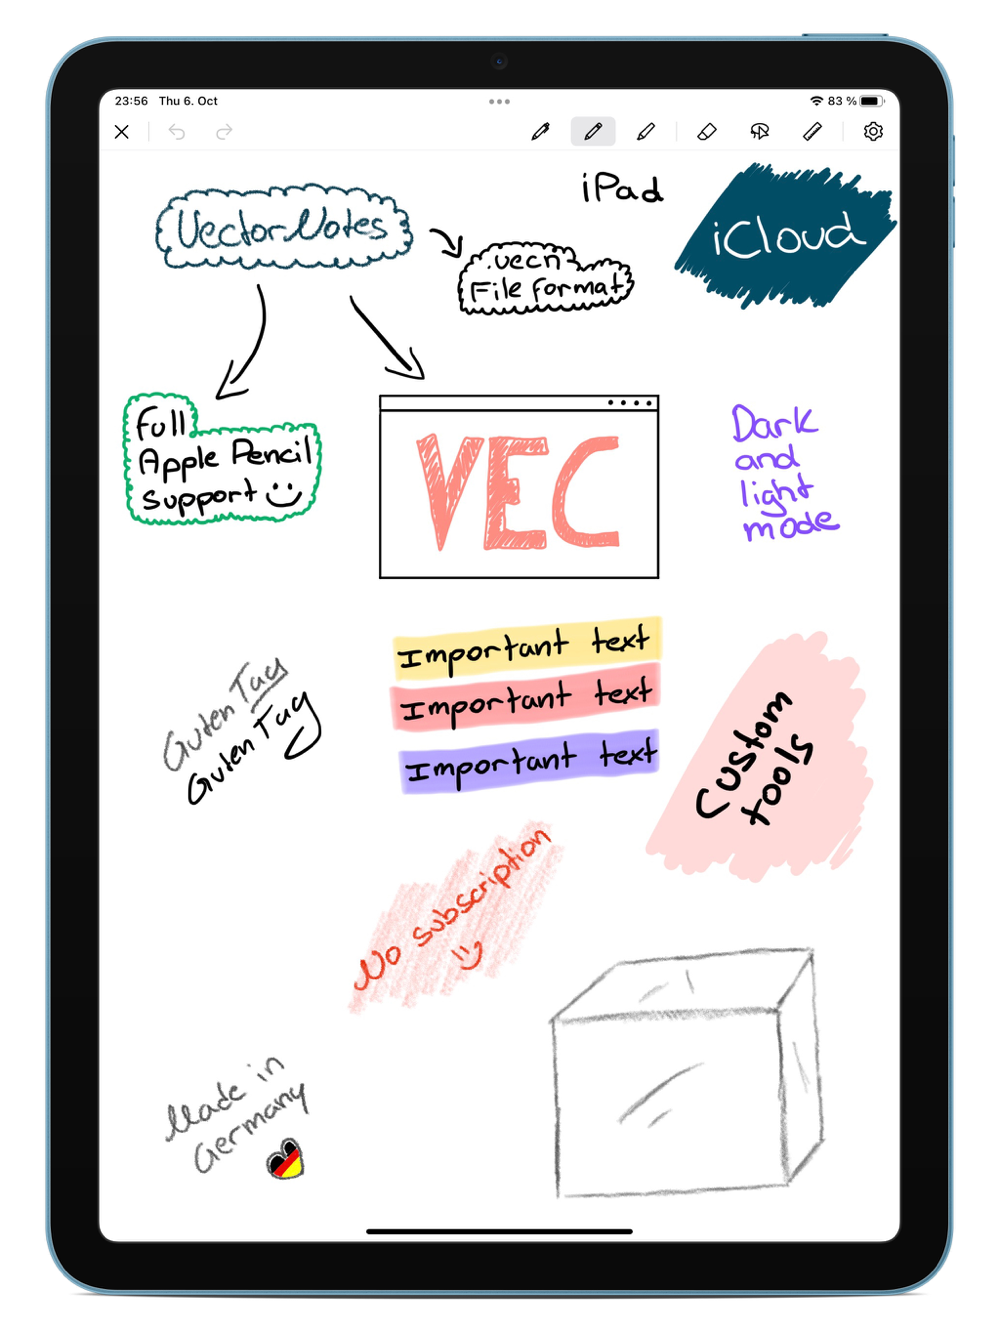 23:56 Thu 6. Oct
83 %
VectorNotes
iPad
iCloud
.vecn
File format
Full
Apple Pencil
support
VEC
Dark
and
light
mode
Important text
Important text
Important text
Guten Tag
Guten Tag
Custom
tools
No subscription
Made in
Germany